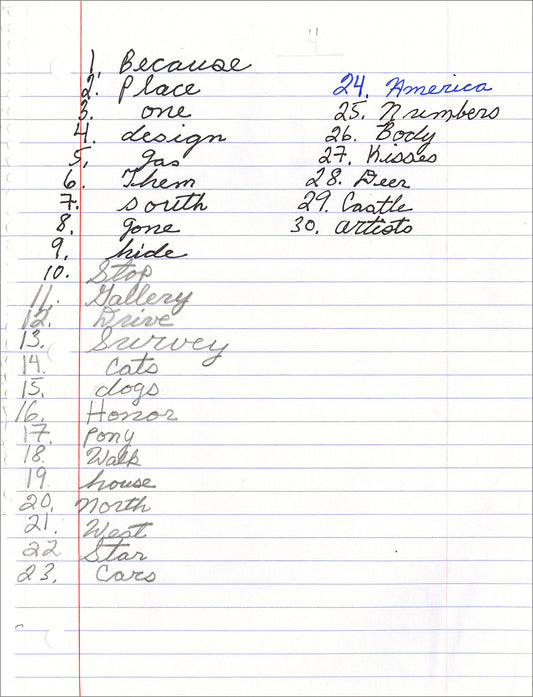 4
1. Because
2. Place
3. one
4. design
5. gas
6. Them
7. south
8. gone
9. hide
10. Stop
11. Gallery
12. Drive
13. Survey
14. Cats
15. dogs
16. Honor
17. Pony
18. Walk
19. house
20. North
21. West
22. Star
23. Cars
24. America
25. Numbers
26. Body
27. Kisses
28. Deer
29. Castle
30. artists